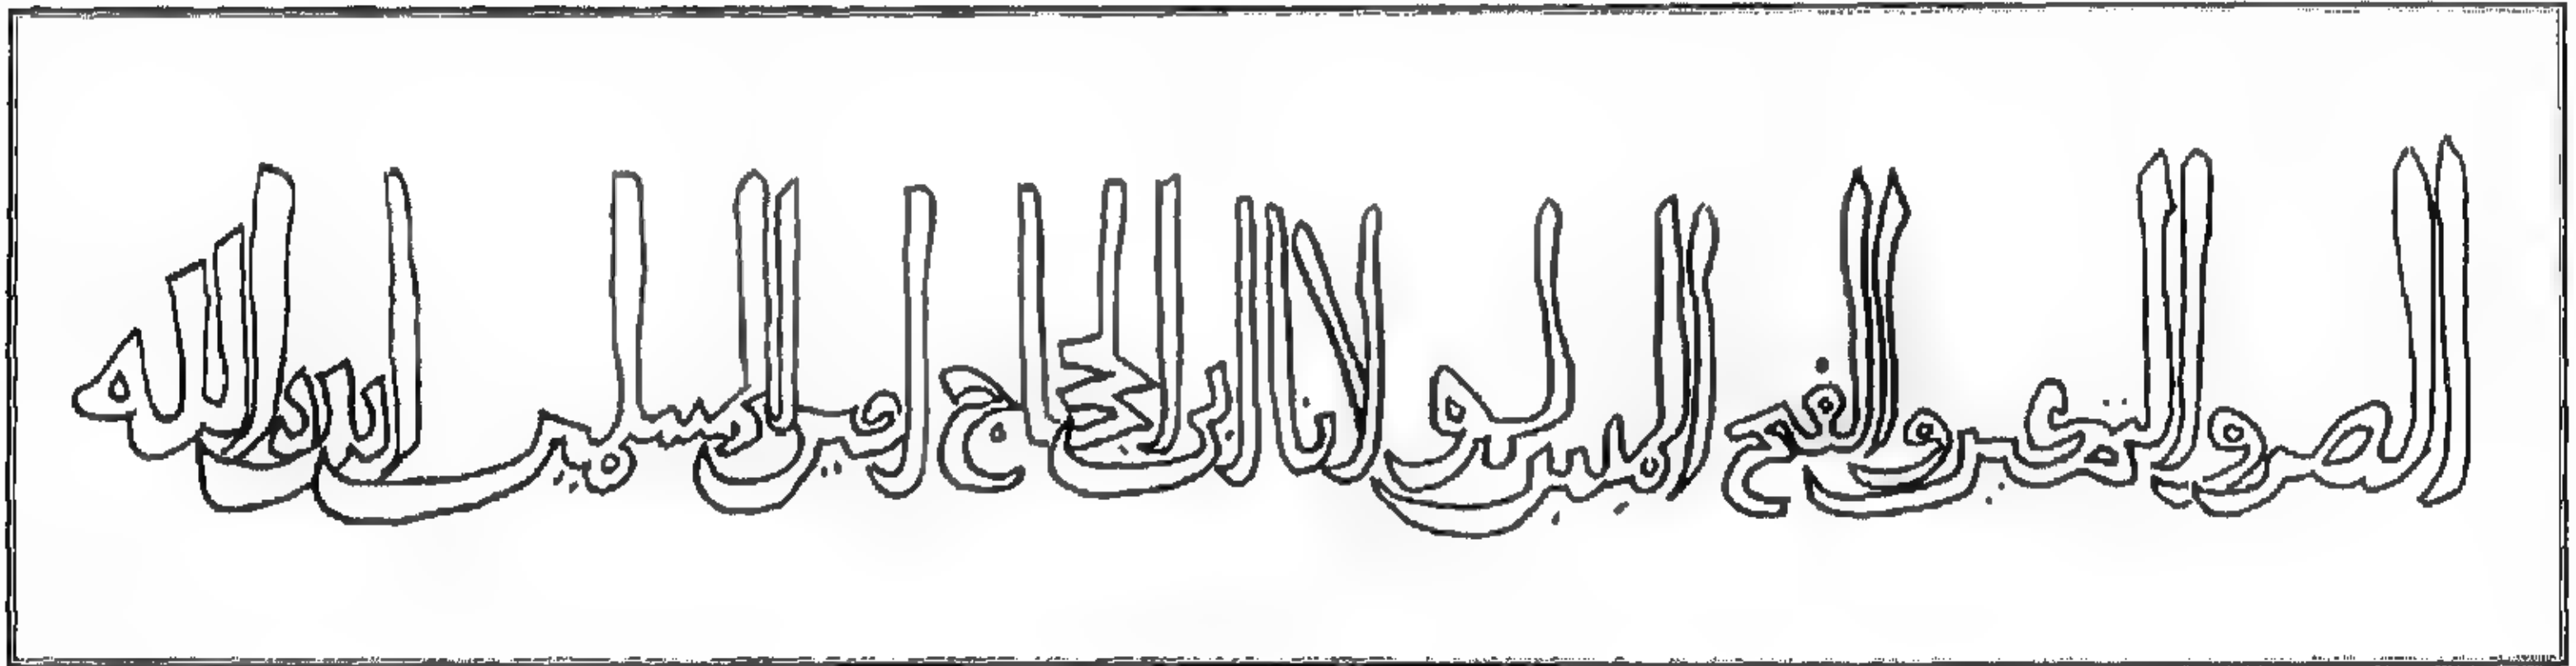 النصر والتمكين والفتح المبين لمولانا ابي الحجاج امير المسلمين ايده الله